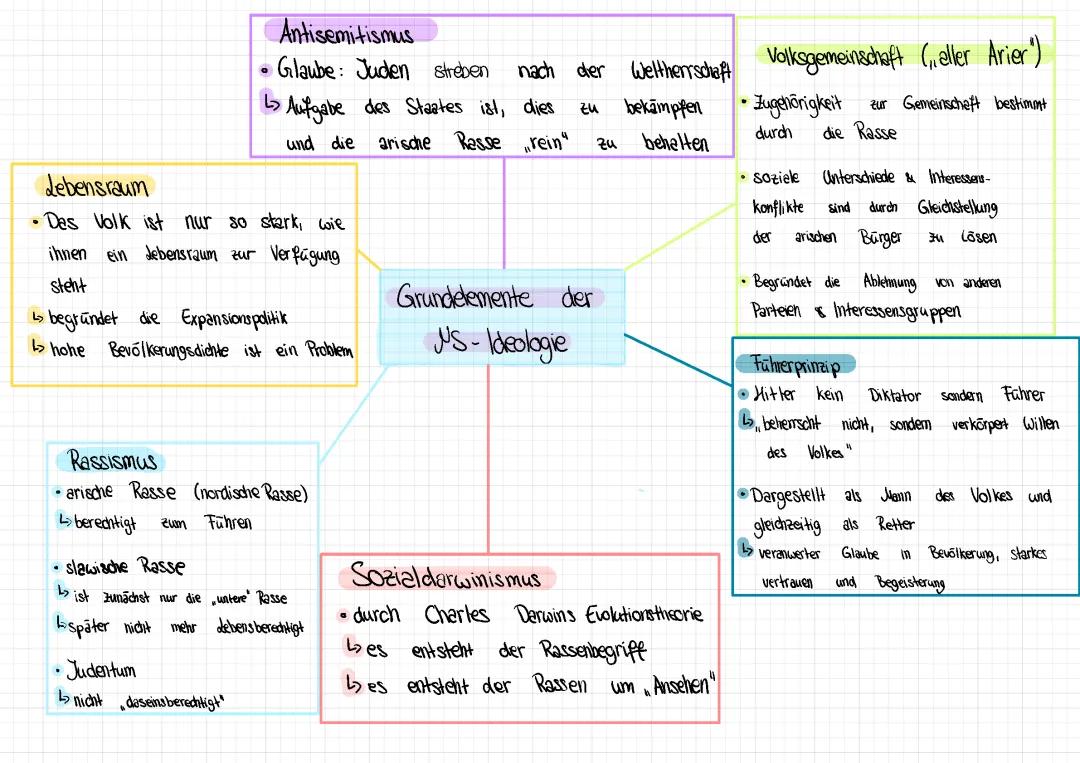 Antisemitismus
• Glaube: Juden streben nach der Weltherrschaft
↳ Aufgabe des Staates ist, dies zu bekämpfen
und die arische Rasse „rein“ zu behalten
Volksgemeinschaft („aller Arier“)
• Zugehörigkeit zur Gemeinschaft bestimmt
durch die Rasse
• soziele Unterschiede & Interessens-
konflikte sind durch Gleichstellung
der arischen Bürger zu lösen
• Begründet die Ablehnung von anderen
Parteien & Interessensgruppen
Lebensraum
• Das Volk ist nur so stark, wie
ihnen ein Lebensraum zur Verfügung
steht
↳ begründet die Expansionspolitik
↳ hohe Bevölkerungsdichte ist ein Problem
Grundelemente der
NS-Ideologie
Führerprinzip
• Hitler kein Diktator sondern Führer
↳ „beherrscht nicht, sondern verkörpert Willen
des Volkes“
• Dargestellt als Mann des Volkes und
gleichzeitig als Retter
↳ veranwerter Glaube in Bevölkerung, starkes
vertrauen und Begeisterung
Rassismus
• arische Rasse (nordische Rasse)
↳ berechtigt zum Führen
• slawische Rasse
↳ ist zunächst nur die „untere“ Rasse
↳ später nicht mehr lebensberechtigt
• Judentum
↳ nicht „daseinsberechtigt“
Sozialdarwinismus
• durch Charles Darwins Evolutionstheorie
↳ es entsteht der Rassenbegriff
↳ es entsteht der Rassen um „Ansehen“